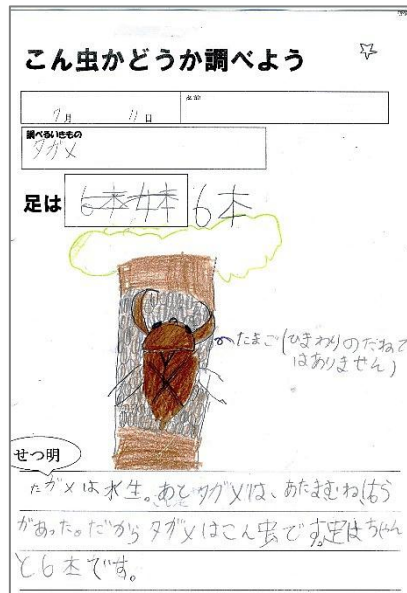 こん虫かどうか調べよう
7月 11日 名前
調べるいきもの
タガメ
足は 6本4本 6本
たまご(ひまわりのたねで
はありません)
せつ明
たガメは水生。あとタガメは、あたまむねはら
があった。だからタガメはこん虫です。足はちゃん
と6本です。